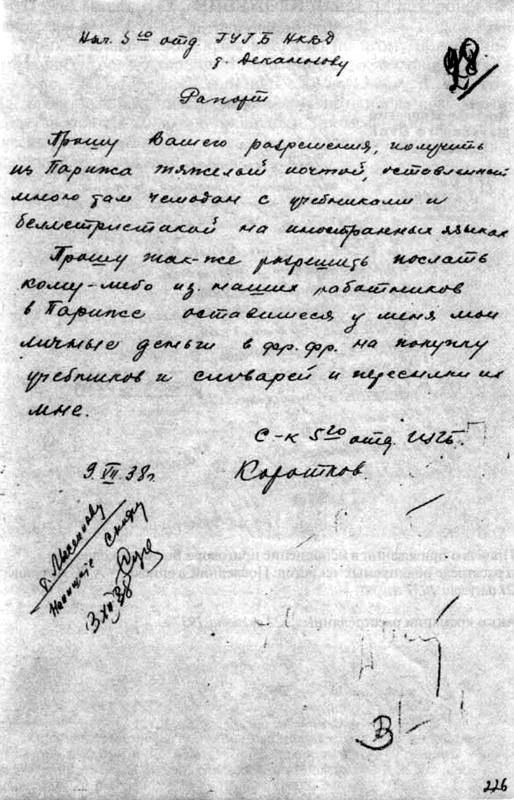 98
Нач. 5го отд. ГУГБ НКВД
т. Деканозову
Рапорт
Прошу Вашего разрешения, получить
из Парижа тяжелой почтой, оставленный
мною там чемодан с учебниками и
беллетристикой на иностранных языках
Прошу так-же разрешить послать
кому-либо из наших работников
в Париже оставшиеся у меня мои
личные деньги в фр. фр. на покупку
учебников и словарей и пересылки их
мне.
С-к 5го отд.
Коротков.
9. VII. 38г.
т.
Напишите
В
226